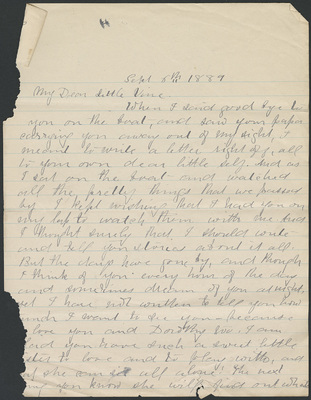 Sept 5th 1889
My Dear Little Vine
When I said good bye to
you on the boat, and saw your papa
carrying you away out of my sight, I
meant to write a little right off, all
to your own dear little self. And as
I sat on the boat and watched
all the pretty things that we passed
by I kept wishing that I had you on
my lap to watch them with me and
I thought surely that I should write
and tell you stories about it all.
But the days have gone by, and though
I think of you every hour of the day
and sometimes dream of you at night,
yet I have not written to tell you how
much I want to see you because
I love you and Dorothy too. I am
glad you have such a sweet little
sister to love and to play with, and
she can not all alone. The next
you know she will find out what